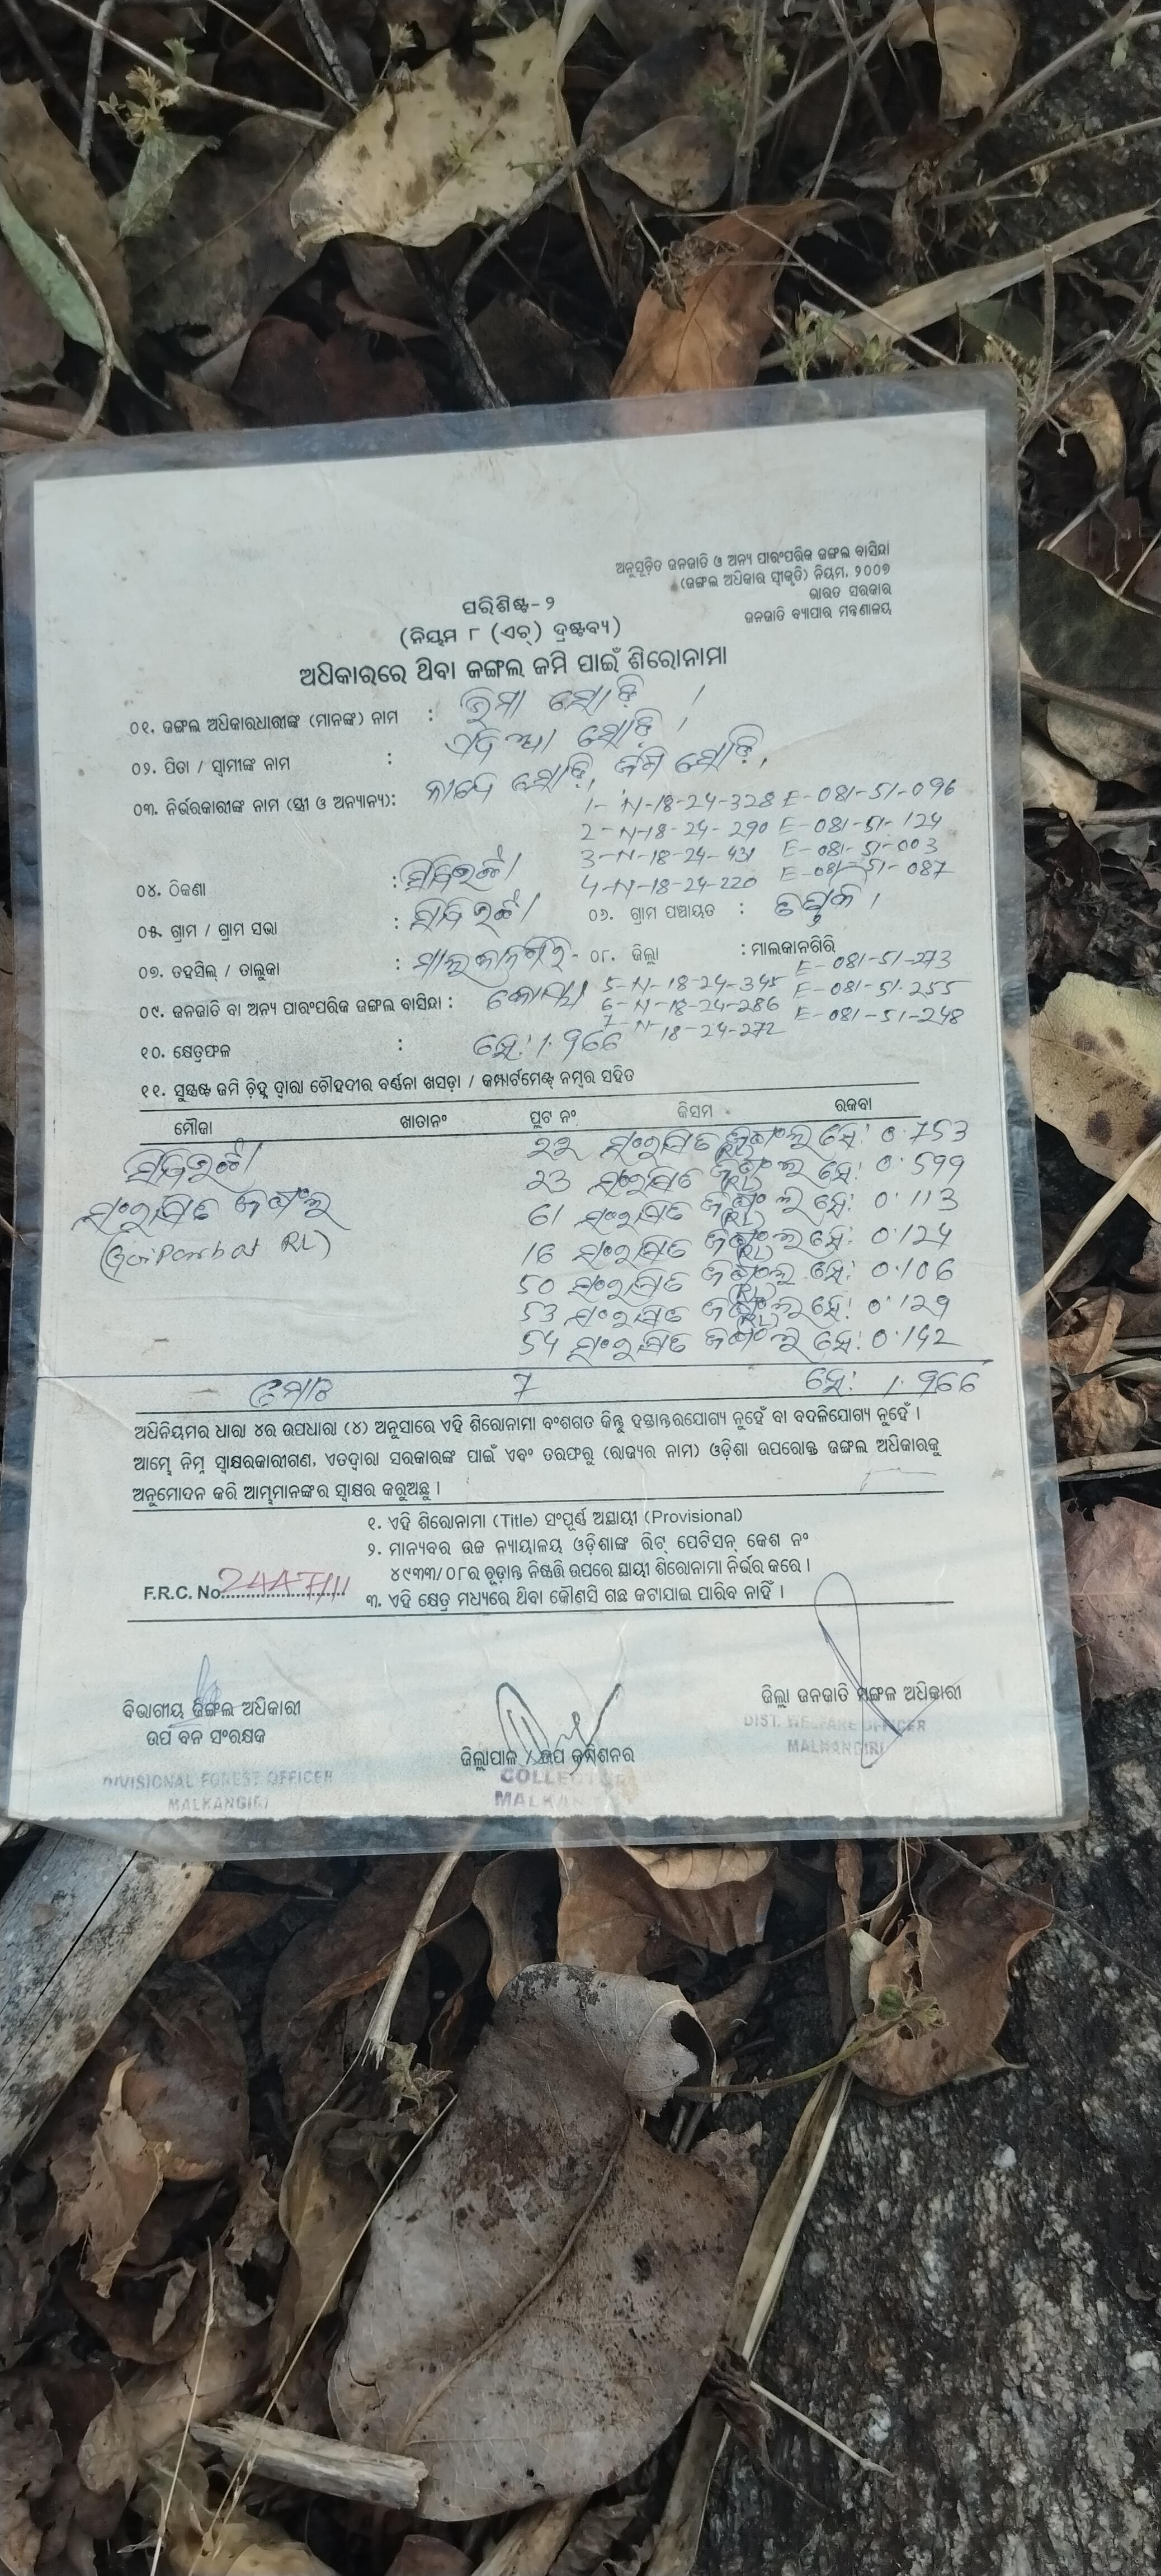 ଅନୁସୂଚିତ ଜନଜାତି ଓ ଅନ୍ୟ ପାରଂପରିକ ଜଙ୍ଗଲ ବାସିନ୍ଦା
(ଜଙ୍ଗଲ ଅଧିକାର ସ୍ୱୀକୃତି) ନିୟମ, ୨୦୦୭
ଭାରତ ସରକାର
ଜନଜାତି ବ୍ୟାପାର ମନ୍ତ୍ରଣାଳୟ
ପରିଶିଷ୍ଟ-୨
(ନିୟମ ୮ (ଏଚ୍) ଦ୍ରଷ୍ଟବ୍ୟ)
ଅଧିକାରରେ ଥିବା ଜଙ୍ଗଲ ଜମି ପାଇଁ ଶିରୋନାମା
୦୧. ଜଙ୍ଗଲ ଅଧିକାରଧାରୀଙ୍କ (ମାନଙ୍କ) ନାମ :
୦୨. ପିତା / ସ୍ୱାମୀଙ୍କ ନାମ :
୦୩. ନିର୍ଭରକାରୀଙ୍କ ନାମ (ସ୍ତ୍ରୀ ଓ ଅନ୍ୟାନ୍ୟ):
1- N-18-24-328 E-081-51-096
2-N-18-24-290 E-081-51-124
3-N-18-24-431 E-081-51-003
4-N-18-24-220 E-081-51-087
୦୪. ଠିକଣା :
୦୫. ଗ୍ରାମ / ଗ୍ରାମ ସଭା : ୦୬. ଗ୍ରାମ ପଞ୍ଚାୟତ :
୦୭. ତହସିଲ୍ / ତାଲୁକା : ମାଲକାନଗିରି- ୦୮. ଜିଲ୍ଲା : ମାଲକାନଗିରି
5-N-18-24-345 E-081-51-273
6-N-18-24-286 E-081-51-255
7-N-18-24-272 E-081-51-248
୦୯. ଜନଜାତି ବା ଅନ୍ୟ ପାରଂପରିକ ଜଙ୍ଗଲ ବାସିନ୍ଦା : କୋୟା
୧୦. କ୍ଷେତ୍ରଫଳ : ହେ: 1.966
୧୧. ସୁସ୍ପଷ୍ଟ ଜମି ଚିହ୍ନ ଦ୍ୱାରା ଚୌହଦୀର ବର୍ଣ୍ଣନା ଖସଡ଼ା / କମ୍ପାର୍ଟମେଣ୍ଟ୍ ନମ୍ବର ସହିତ
ମୌଜା ଖାତାନଂ ପ୍ଲଟ ନଂ କିସମ ରକବା
22 ସଂରକ୍ଷିତ ଜଙ୍ଗଲ (RL) ହେ: 0.753
23 ସଂରକ୍ଷିତ ଜଙ୍ଗଲ (RL) ହେ: 0.599
ସଂରକ୍ଷିତ ଜଙ୍ଗଲ 61 ସଂରକ୍ଷିତ ଜଙ୍ଗଲ (RL) ହେ: 0.113
16 ସଂରକ୍ଷିତ ଜଙ୍ଗଲ (RL) ହେ: 0.124
50 ସଂରକ୍ଷିତ ଜଙ୍ଗଲ (RL) ହେ: 0.106
53 ସଂରକ୍ଷିତ ଜଙ୍ଗଲ (RL) ହେ: 0.129
54 ସଂରକ୍ଷିତ ଜଙ୍ଗଲ ହେ: 0.142
ମୋଟ 7 ହେ: 1.966
ଅଧିନିୟମର ଧାରା ୪ର ଉପଧାରା (୪) ଅନୁସାରେ ଏହି ଶିରୋନାମା ବଂଶଗତ କିନ୍ତୁ ହସ୍ତାନ୍ତରଯୋଗ୍ୟ ନୁହେଁ ବା ବଦଳିଯୋଗ୍ୟ ନୁହେଁ ।
ଆମ୍ଭେ ନିମ୍ନ ସ୍ୱାକ୍ଷରକାରୀଗଣ, ଏତଦ୍ୱାରା ସରକାରଙ୍କ ପାଇଁ ଏବଂ ତରଫରୁ (ରାଜ୍ୟର ନାମ) ଓଡ଼ିଶା ଉପରୋକ୍ତ ଜଙ୍ଗଲ ଅଧିକାରକୁ
ଅନୁମୋଦନ କରି ଆମ୍ଭମାନଙ୍କର ସ୍ୱାକ୍ଷର କରୁଅଛୁ ।
୧. ଏହି ଶିରୋନାମା (Title) ସଂପୂର୍ଣ୍ଣ ଅସ୍ଥାୟୀ (Provisional)
୨. ମାନ୍ୟବର ଉଚ୍ଚ ନ୍ୟାୟାଳୟ ଓଡ଼ିଶାଙ୍କ ରିଟ୍ ପେଟିସନ୍ କେଶ ନଂ
୪୯୩୩/୦୮ର ଚୂଡ଼ାନ୍ତ ନିଷ୍ପତ୍ତି ଉପରେ ସ୍ଥାୟୀ ଶିରୋନାମା ନିର୍ଭର କରେ ।
F.R.C. No.
୩. ଏହି କ୍ଷେତ୍ର ମଧ୍ୟରେ ଥିବା କୌଣସି ଗଛ କଟାଯାଇ ପାରିବ ନାହିଁ ।
ବିଭାଗୀୟ ଜଙ୍ଗଲ ଅଧିକାରୀ
ଉପ ବନ ସଂରକ୍ଷକ
DIVISIONAL FOREST OFFICER
MALKANGIRI
ଜିଲ୍ଲାପାଳ / ଉପ କମିଶନର
COLLECTOR
ଜିଲ୍ଲା ଜନଜାତି ମଙ୍ଗଳ ଅଧିକାରୀ
DIST. WELFARE OFFICER
MALKANGIRI